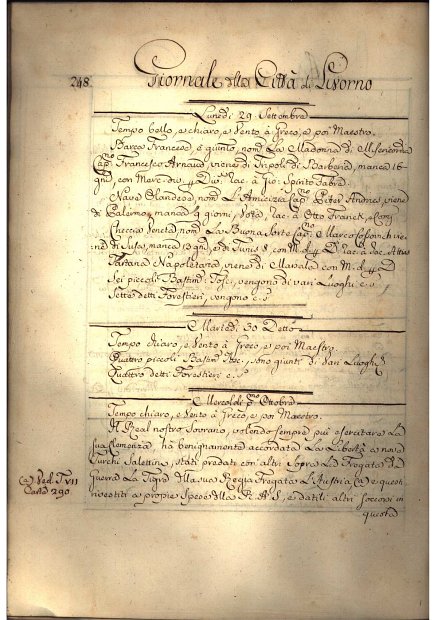 248. Giornale della Città di Livorno
Lunedì 29 Settembre
Tempo bello, e chiaro, e Vento à Greco, e poi Maestro.
Barca Francese, è giunto, nom.ª La Madonna di Misericordia
Cap.no Francesco Arnaud, viene di Tripoli di Barberia, manca 16
gni, con Merc. div.
Nave Olandese, nom.ª L'Amicizia Cap.no Peter Andres, viene
di Palermo, manca 9 giorni, Vota, rac. à Otto Franck, e Comp.
Checcia Veneta, nom.ª La Buona Sorte Cap.no Marco
di Susa, manca 13 gni, e di Tunis 8, con M.
Tartana Napoletana, viene di con M. d.
Sei piccoli Bastim.i Tosc., vengono di vari Luoghi c. s.
Sette detti Forestieri, vengono c. s.
Martedì 30 Detto
Tempo chiaro, e Vento à Greco, e poi Maestro.
Quattro piccoli Bastim.i Tosc., sono giunti di vari Luoghi.
Quattro detti Forestieri c. s.
Mercoldì p.mo Ottobre
Tempo chiaro, e Vento à Greco, e poi Maestro.
Il Real nostro Sovrano, volendo sempre più esercitare La
sua Clemenza, hà benignamente accordata La Libertà a nove
Turchi Salettini, stati predati con altri sopra La Fregata da
guerra La Tigra dalla sua Regia Fregata L'Austria (a) e questi
rivestiti a proprie spese della R. A. S., e datili altri soccorsi in
questa
(a) Ved. T. VII
Carta 290